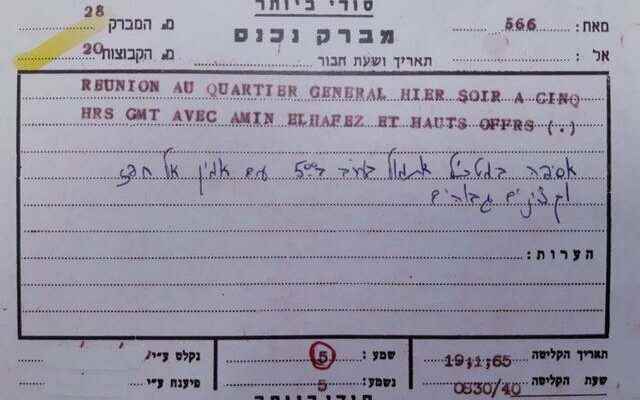 סודי ביותר
מברק נכנס
מס. המברק 28
מס. הקבוצות 20
מאת: 566
אל:
תאריך ושעת חבור
REUNION AU QUARTIER GENERAL HIER SOIR A CINQ
HRS GMT AVEC AMIN ELHAFEZ ET HAUTS OFFRS (.)
אסיפה במטכ"ל אתמול בערב ב-5 עם אמין אל חפז
וקצינים גבוהים
הערות:
תאריך הקליטה 19,1,65
שעת הקליטה 0830/40
שמע: 5
נשמע: 5
נקלט ע"י
פיענח ע"י
סודי ביותר